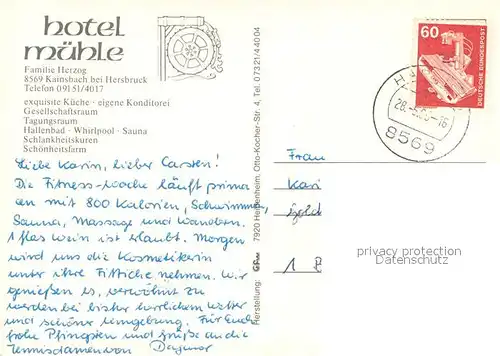 hotel
mühle
Familie Herzog
8569 Kainsbach bei Hersbruck
Telefon 09151/4017
exquisite Küche · eigene Konditorei
Gesellschaftsraum
Tagungsraum
Hallenbad · Whirlpool · Sauna
Schlankheitskuren
Schönheitsfarm
Liebe Karin, lieber Carsten!
Die Fitness-Woche läuft prima
an mit 800 Kalorien, Schwimmen,
Sauna, Massage und Wandern.
1 Glas Wein ist erlaubt. Morgen
wird uns die Kosmetikerin
unter ihre Fittiche nehmen. Wir
genießen es, verwöhnt zu
werden bei bisher herrlichem Wetter
und schöner Umgebung. Für Euch
frohe Pfingsten und Grüße an die
Tennisdamen von Dagmar
Herstellung: 7920 Heidenheim, Otto-Kocher-Str. 4, Tel. 07321/44004
60
DEUTSCHE BUNDESPOST
8569
Frau
Kari
1 B
privacy protection
Datenschutz